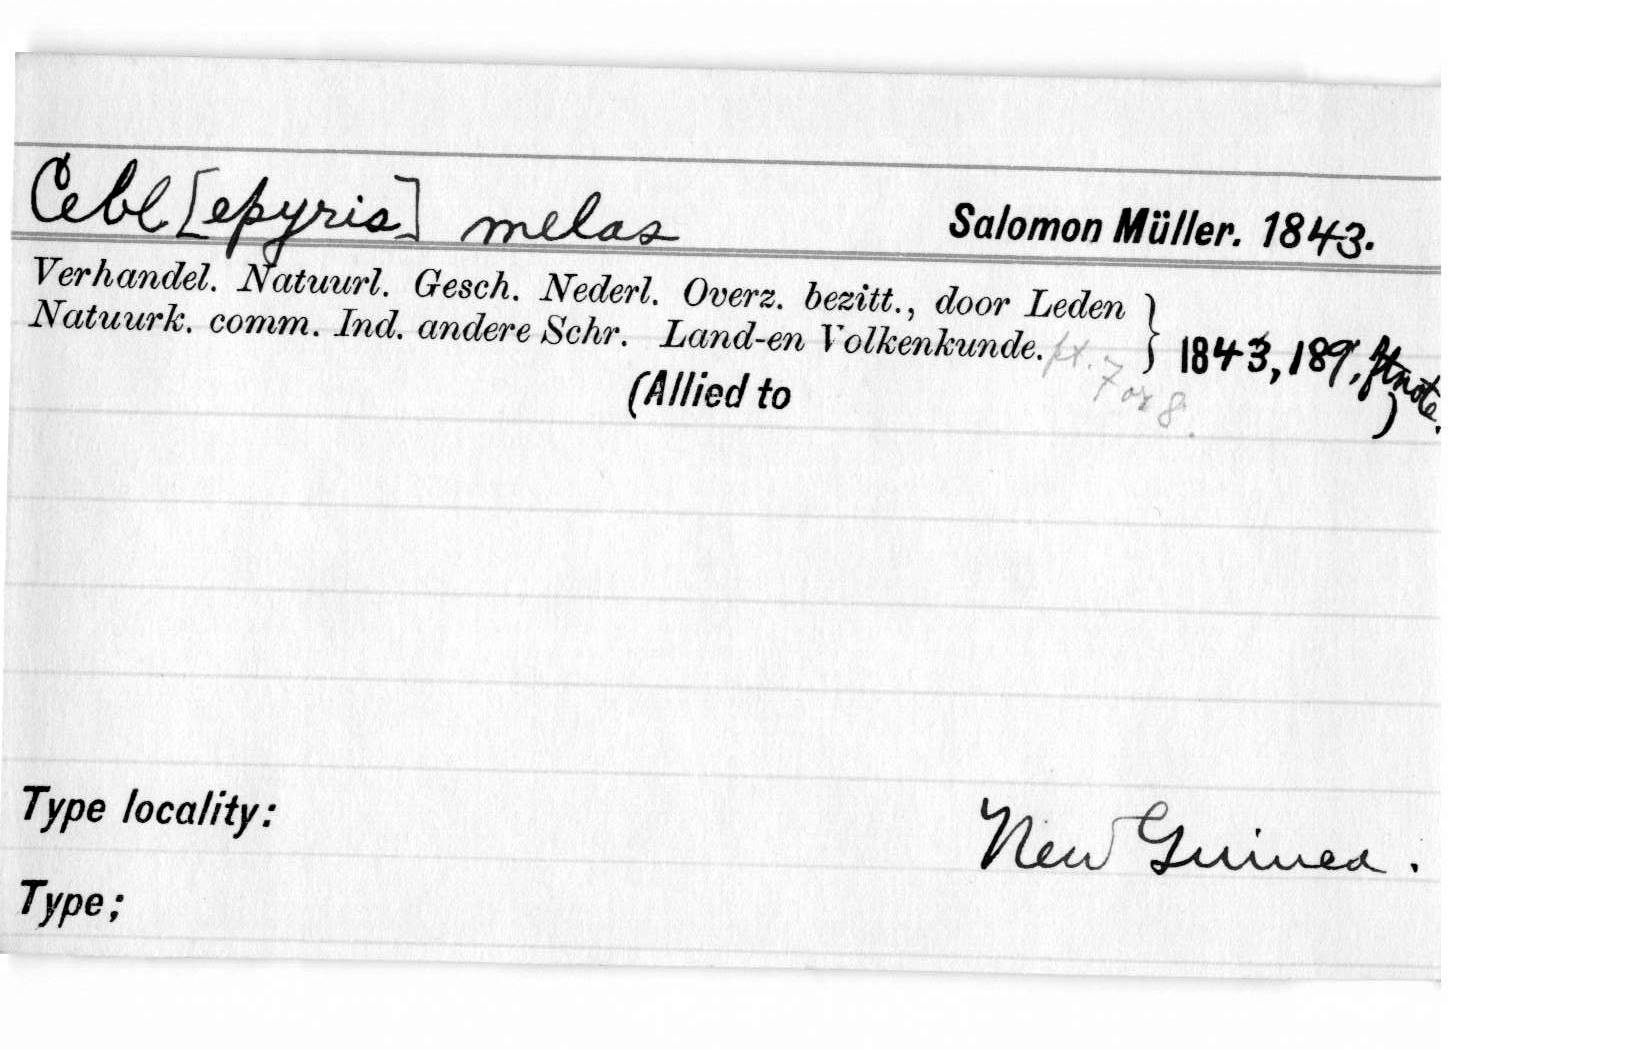 Cebl[epyris] melas Salomon Müller. 1843.
Verhandel. Natuurl. Gesch. Nederl. Overz. bezitt., door Leden }
Natuurk. comm. Ind. andere Schr. Land-en Volkenkunde. pt. 7 or 8. } 1843, 189, ftnote.
(Allied to )
Type locality: New Guinea.
Type;